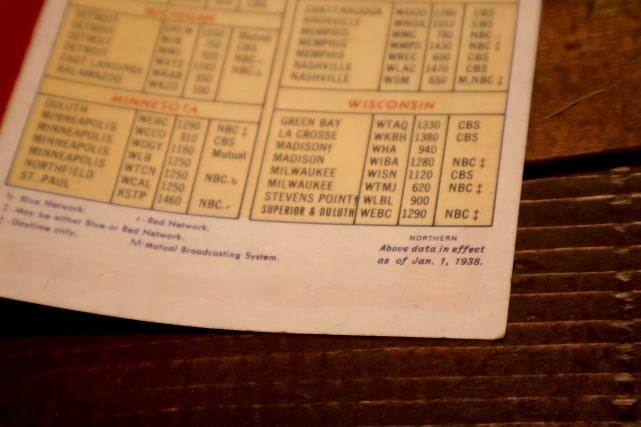 MICHIGAN
DETROIT
DETROIT
DETROIT WWJ
DETROIT
EAST LANSING† WKAR 850
KALAMAZOO WKZO 590
Mutual
CBS
NBC-r
NBC-b
CHATTANOOGA WDOD 1280 CBS
KNOXVILLE WNOX 1010 CBS
MEMPHIS WMC 780 NBC-r
MEMPHIS WMPS 1430 NBC ‡
MEMPHIS WREC 600 CBS
NASHVILLE WLAC 1470 CBS
NASHVILLE WSM 650 M,NBC ‡
MINNESOTA
DULUTH WEBC 1290 NBC ‡
MINNEAPOLIS WCCO 810 CBS
MINNEAPOLIS WDGY 1180 Mutual
MINNEAPOLIS WLB 1250
MINNEAPOLIS WTCN 1250 NBC-b
NORTHFIELD WCAL 1250
ST. PAUL KSTP 1460 NBC-r
WISCONSIN
GREEN BAY WTAQ 1330 CBS
LA CROSSE WKBH 1380 CBS
MADISON† WHA 940
MADISON WIBA 1280 NBC ‡
MILWAUKEE WISN 1120 CBS
MILWAUKEE WTMJ 620 NBC ‡
STEVENS POINT† WLBL 900
SUPERIOR & DULUTH WEBC 1290 NBC ‡
b-Blue Network. r-Red Network.
‡-May be either Blue or Red Network.
†-Daytime only. M-Mutual Broadcasting System.
NORTHERN
Above data in effect
as of Jan. 1, 1938.